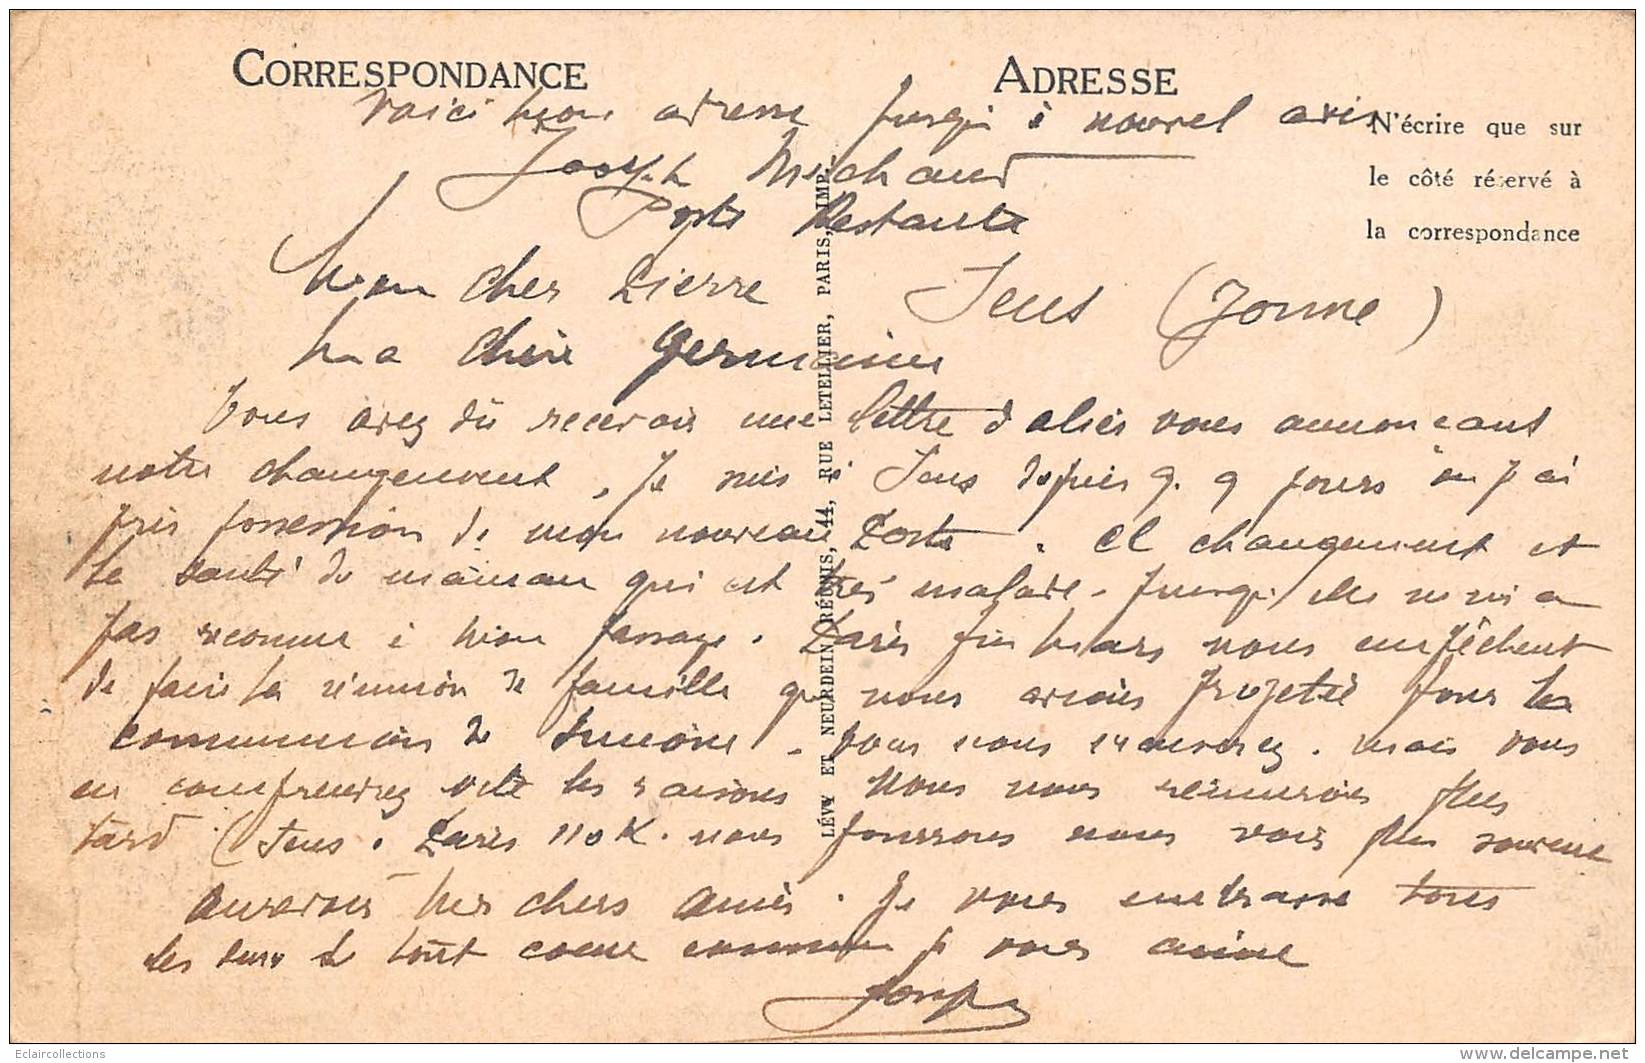 CORRESPONDANCE
ADRESSE
N'écrire que sur
le côté réservé à
la correspondance
Voici mon adresse jusqu'à nouvel avis
Joseph Michaud
Poste Restante
Sens (Yonne)
Mon cher Pierre
Ma chère Germaine
Vous avez dû recevoir une lettre d'alice vous annonçant
notre changement, Je suis à Sens depuis q. q jours où j'ai
pris possession de mon nouveau Poste. Ce changement et
la santé de maman qui est très malade. Jusqu'
pas reconnu à mon passage. Paris fin Mars nous empêchent
de faire la réunion de famille que nous avions projetée pour la
communion de Simone. Vous nous excuserez. mais vous
en comprendrez vite les raisons Nous nous réunirons plus
tard. (Sens. Paris 110 K. nous pourrons nous voir plus souvent
Aurevoir mes chers amis. Je vous embrasse tous
les deux de tout coeur comme je vous aime
Joseph
LÉVY ET NEURDEIN RÉUNIS, 44, RUE LETELLIER, PARIS, IMP.
Eclaircollections
delcampe.net